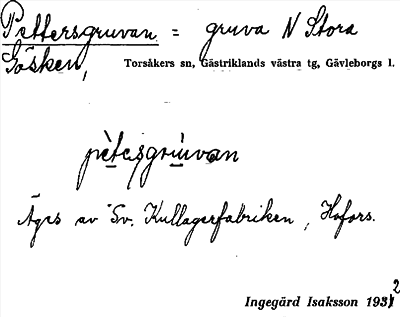 Pettersgruvan = gruva N Stora
Gösken,
Torsåkers sn, Gästriklands västra tg, Gävleborgs l.
pètesgrùvan
Äges av Sv. Kullagerfabriken, Hofors.
Ingegärd Isaksson 1932